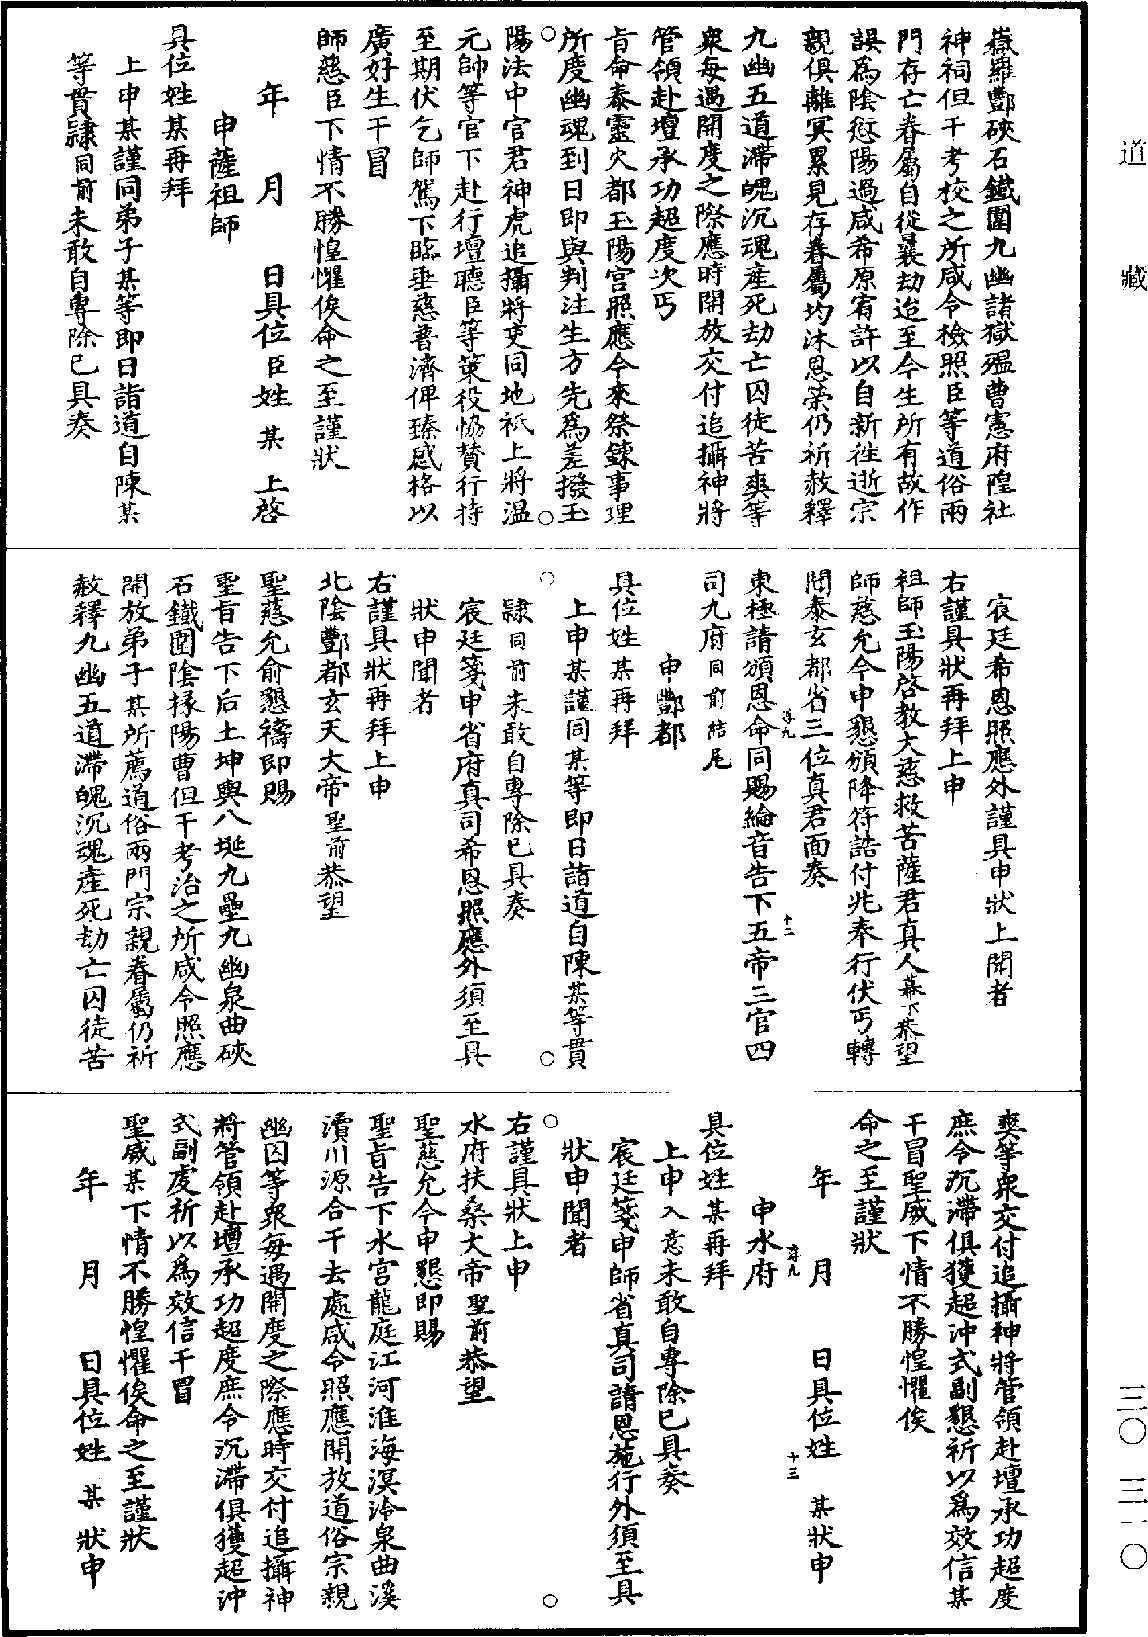 道藏
三〇 三一〇
嶽羅酆硤石鐵圍九幽諸獄瘟曹憲府隍社
神祠但干考校之所咸令檢照臣等道俗兩
門存亡眷屬自從曩劫迨至今生所有故作
誤為陰愆陽過咸希原宥許以自新徃逝宗
親俱離冥累見存眷屬均沐恩榮仍祈赦釋
九幽五道滯魄沉魂産死劫亡囚徒苦爽等
衆每遇開度之際應時開放交付追攝神將
管領赴壇承功超度次丐
旨命泰靈火都玉陽宮照應今來祭鍊事理
所度幽魂到日即與判注生方先為差撥玉
陽法中官君神虎追攝將吏同地祇上將温
元帥等官下赴行壇聽臣等策役恊賛行持
至期伏乞師駕下臨垂慈普濟俾臻感格以
廣好生干冒
師慈臣下情不勝惶懼俟命之至謹狀
年 月 日具位臣姓 某 上啓
申薩祖師
具位姓某再拜
上申某謹同弟子某等即日詣道自陳某
等貫隷同前未敢自專除已具奏
宸廷希恩照應外謹具申狀上聞者
右謹具狀再拜上申
祖師玉陽啓教大慈救苦薩君真人幕下恭望
師慈允今申懇頒降符誥付兆奉行伏丐轉
聞泰玄都省三位真君面奏
東極請頒恩命同賜綸音告下五帝三官四
司九府同前結尾
申酆都
具位姓某再拜
上申某謹同某等即日詣道自陳某等貫
隷同前未敢自專除已具奏
宸廷箋申省府真司希恩照應外須至具
狀申聞者
右謹具狀再拜上申
北陰酆都玄天大帝聖前恭望
聖慈允俞懇禱即賜
聖旨告下后土坤輿八埏九壘九幽泉曲硤
石鐵圍陰椽陽曹但干考治之所咸令照應
開放弟子某所薦道俗兩門宗親眷屬仍祈
赦釋九幽五道滯魄沉魂産死劫亡囚徒苦
爽等衆交付追攝神將管領赴壇承功超度
庶令沉滯俱獲超沖式副懇祈以為效信某
干冒聖威下情不勝惶懼俟
命之至謹狀
年 月 日具位姓 某狀申
申水府
具位姓某再拜
上申入意未敢自專除已具奏
宸廷箋申師省真司請恩施行外須至具
狀申聞者
右謹具狀上申
水府扶桑大帝聖前恭望
聖慈允今申懇即賜
聖旨告下水宮龍庭江河淮海溟泠泉曲溪
瀆川源合干去處咸令照應開放道俗宗親
幽囚等衆每遇開度之際應時交付追攝神
將管領赴壇承功超度庶令沉滯俱獲超沖
式副虔祈以為效信干冒
聖威某下情不勝惶懼俟命之至謹狀
年 月 日具位姓 某 狀申